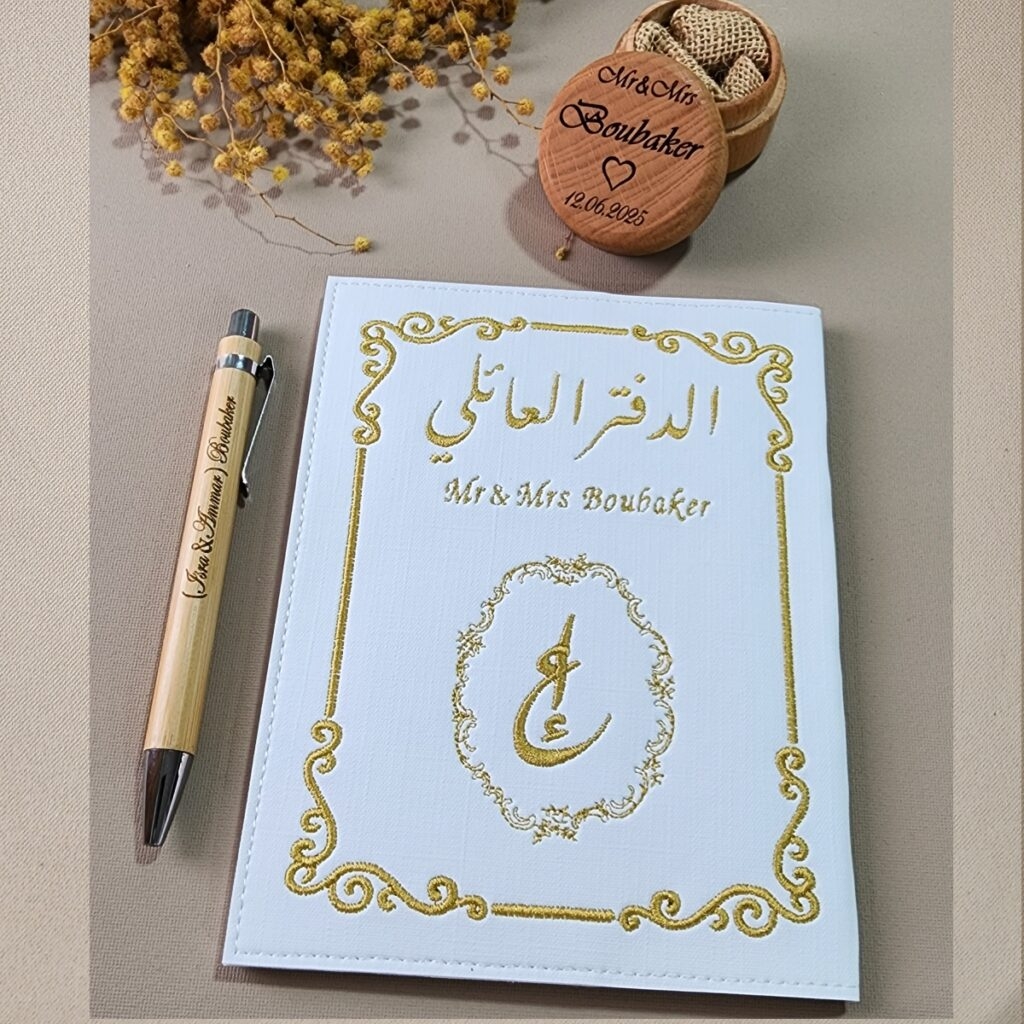 Mr&Mrs
Boubaker
12.06.2025
الدفتر العائلي
Mr & Mrs Boubaker
(Isra & Ammar) Boubaker